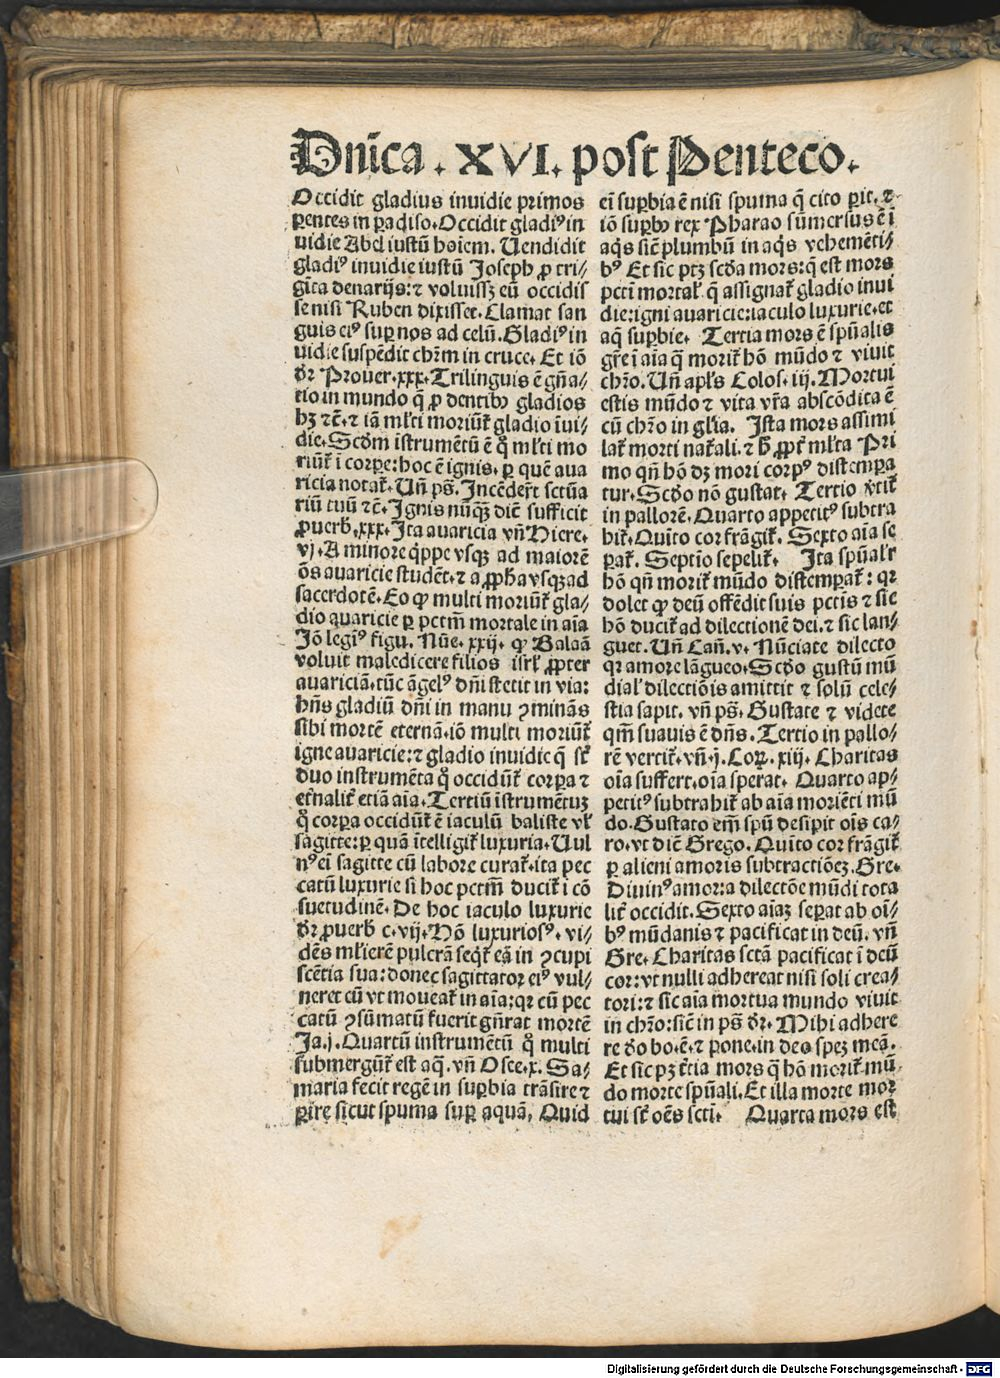 Dnĩca . XVI. post Penteco.
Occidit gladius inuidie primos
ꝑentes in ꝑadiso. Occidit gladiꝰ in
uidie Abel iustũ hoĩem. Uendidit
gladiꝰ inuidie iustũ Joseph ꝓ tri⸗
gĩta denarijs: ⁊ voluissꝫ eũ occidis
se nisi Ruben dixisset. Clamat san
guis eiꝰ suꝑ nos ad celũ. Gladiꝰ in
uidie suspẽdit chr̃m in cruce. Et iõ
dr̃ Prouer. xxx. Trilinguis ẽ gñã⸗
tio in mundo q̃ ꝓ dentibꝰ gladios
hꝫ ⁊c̃. ⁊ iã ml̃ti moriũt᷑ gladio ĩui⸗
die. Scd̃m ĩstrumẽtũ ẽ ꝙ̊ ml̃ti mo
riũt᷑ ĩ corpe: hoc ẽ ignis. ꝑ quẽ aua
ricia notat᷑. Uñ ps̃. Incẽder̃t sctũa
riũ tuũ ⁊c̃. Ignis nũqꝫ diẽ sufficit
ꝓuerb̃. xxx. Ita auaricia vñ Hiere.
vj. A minore q̇ppe vsqꝫ ad maiorẽ
õs auaricie studẽt. ⁊ a ꝓph̃a vsqꝫ ad
sacerdotẽ. Eo ꝙ multi moriũt᷑ gla⸗
dio auaricie ꝑ pctm̃ mortale in aĩa
Jõ legiꝰ figu. Nũe. xxij. ꝙ Balaã
voluit maledicere filios isrl̃ ꝓpter
auariciã. tũc ãgelꝰ dñi stetit in via:
hñs gladiũ dñi in manu ꝯminãs
sibi mortẽ eternã. iõ multi moriũt᷑
igne auaricie: ⁊ gladio inuidie q̃ sť
duo instrumẽta ꝙ̊ occidũt᷑ corꝑa ⁊
et̃nalit᷑ etiã aĩa. Tertiũ ĩstrumẽtuꝫ
ꝙ̊ corꝑa occidũt᷑ ẽ iaculũ baliste vl̃
sagitte: ꝑ quã ĩtelligit᷑ luxuria. Uul
nꝰ eĩ sagitte cũ labore curat᷑. ita pec
catũ luxurie si hoc pctm̃ ducit᷑ ĩ cõ
suetudinẽ. De hoc iaculo luxurie
dr̃ ꝓuerb̃ c. vij. Nõ luxuriosꝰ. vi⸗
dẽs ml̃ierẽ pulcrã seqt᷑ eã in ꝯcupi
scẽtia sua: donec sagittatoꝝ eiꝰ vul⸗
neret cũ vt moueat᷑ in aĩa: qꝛ cũ pec
catũ ꝯsũmatũ fuerit gñrat mortẽ
Ja. j. Quartũ instrumẽtũ ꝙ̊ multi
submergũt᷑ est aq̃. vñ Osce. x. Sa⸗
maria fecit regẽ in suꝑbia trãsire ⁊
ꝑire sicut spuma suꝑ aquã, Quid
eĩ suꝑbia ẽ nisi spuma q̃ cito ꝑit. ⁊
iõ suꝑbꝰ rex Pharao sũmersus ẽ ĩ
aq̇s sic̃ plumbũ in aq̇s vehemẽti⸗
bꝰ Et sic ptꝫ scd̃a mors: q̃ est mors
pcti mortal̃. q̃ assignat᷑ gladio inui
die: igni auaricie: iaculo luxurie. et
aq̃ suꝑbie. Tertia mors ẽ spũalis
gr̃e ĩ aĩa q̃ morit᷑ hõ mũdo ⁊ viuit
chr̃o. Uñ apl̃s Colos. iij. Mortui
estis mũdo ⁊ vita vr̃a abscõdita ẽ
cũ chr̃o in gl̃ia. Ista mors assimi
lat᷑ morti nat᷑ali. ⁊ h̃ ꝓpt᷑ ml̃ta Pri
mo qñ hõ dꝫ mori corpꝰ distempa
tur. Scd̃o nõ gustat. Tertio v̉tit᷑
in pallorẽ. Quarto appetitꝰ subtra
hit᷑. Quĩto cor frãgit᷑. Sexto aĩa se
ꝑat᷑. Septĩo sepelit᷑. Ita spũal̃r
hõ qñ morit᷑ mũdo distemꝑat᷑: qꝛ
dolet ꝙ deũ offẽdit suis pctis ⁊ sic
hõ ducit᷑ ad dilectionẽ dei. ⁊ sic lan⸗
guet. Uñ Cañ. v. Nũciate dilecto
qꝛ amore lãgueo. Scd̃o gustũ mũ
dial̃ dilectiõis amittit ⁊ solũ cele⸗
stia sapit. vñ ps̃. Gustate ⁊ videte
qm̃ suauis ẽ dñs. Tertio in pallo⸗
rẽ vertit᷑. vñ. j. Coꝝ. xiij. Charitas
oĩa suffert. oĩa sperat. Quarto ap⸗
petitꝰ subtrahit᷑ ab aĩa moriẽti mũ
do. Gustato em̃ spũ desipit oĩs ca⸗
ro. vt dic̃ Grego. Quĩto cor frãgit᷑
ꝑ alieni amoris subtractiõeꝫ. Gre.
Diuinꝰ amor: a dilectõe mũdi tota
lit᷑ occidit. Sexto aĩaꝫ seꝑat ab oĩ⸗
bꝰ mũdanis ⁊ pacificat in deũ. vñ
Gre. Charitas sctã pacificat ĩ deũ
cor: vt nulli adhereat nisi soli crea⸗
tori: ⁊ sic aĩa mortua mundo viuit
in chr̃o: sic̃ in ps̃ dr̃. Mihi adhere
re deo bo. ẽ. ⁊ pone. in deo speꝫ meã.
Et sic pꝫ t̃tia mors q̃ hõ morit᷑ mũ⸗
do morte spũali. Et illa morte mor
tui sť oẽs scti. Quarta mors est
Digitalisierung gefördert durch die Deutsche Forschungsgemeinschaft - DFG